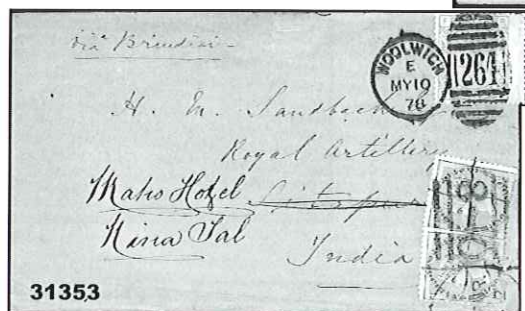 via Brindisi
WOOLWICH
E
MY 19
78
1264
H. M. Sandbach
Royal Artillery
Maho Hotel
Nina Tal
India
31353